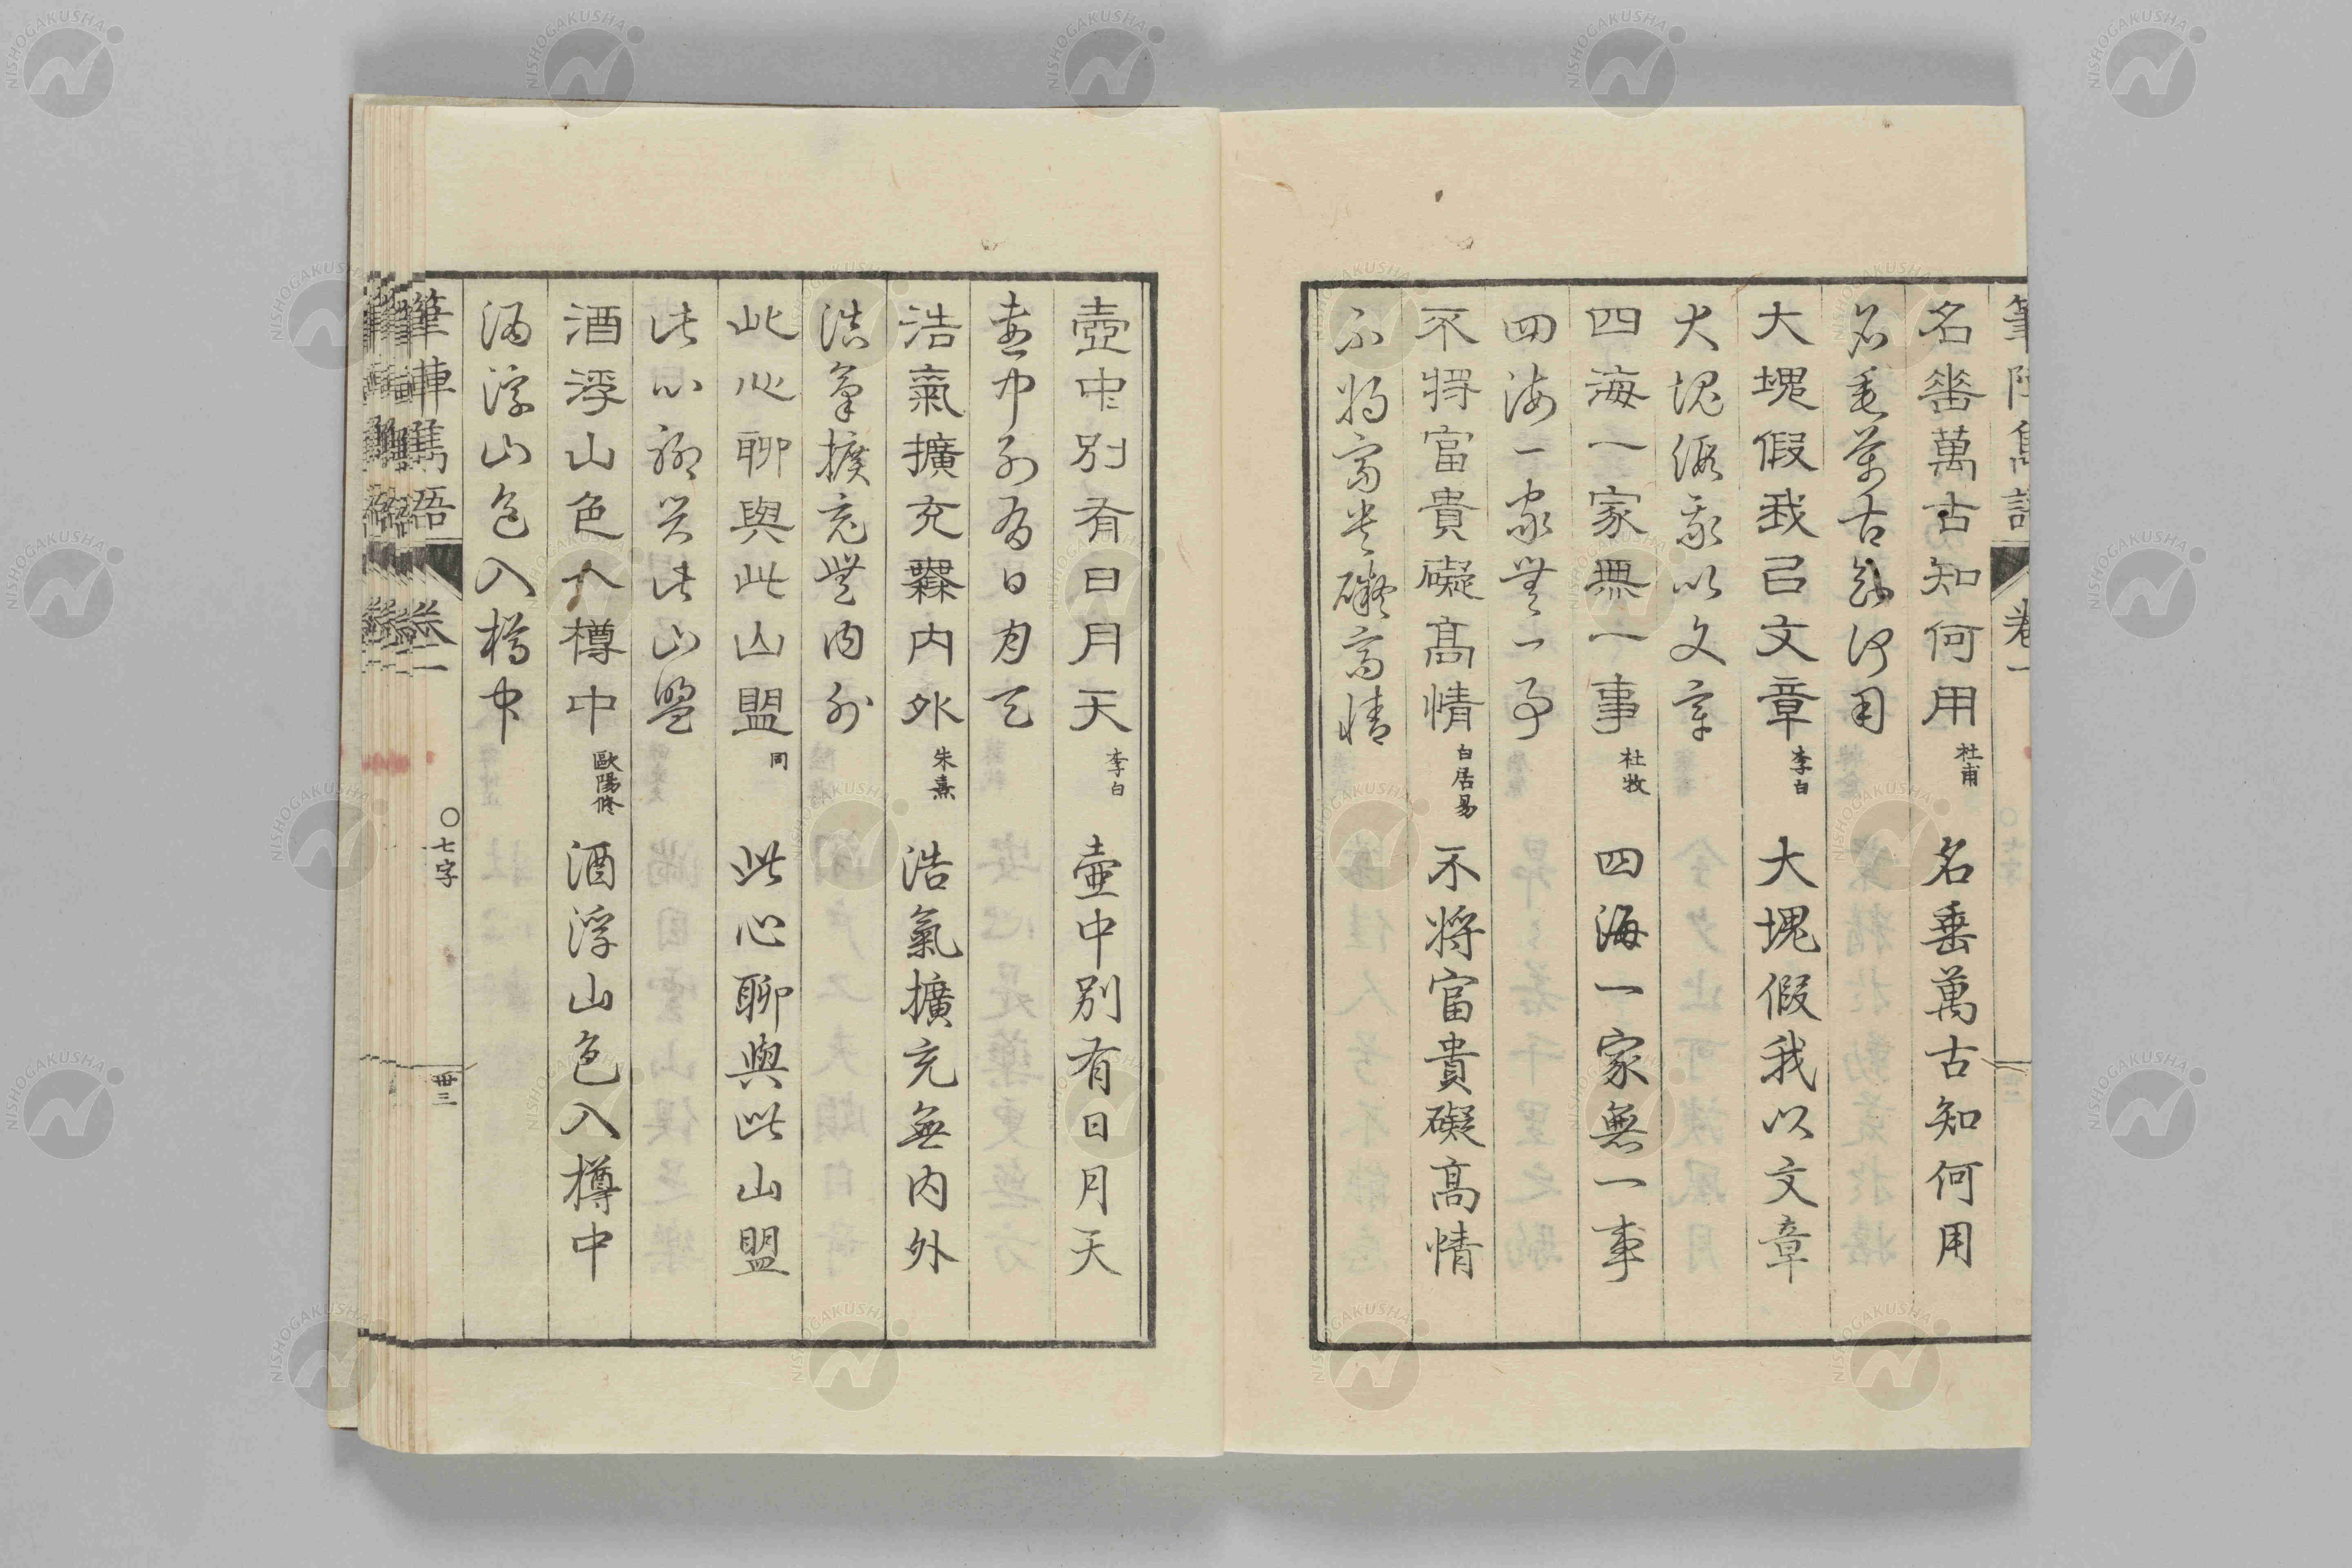 名垂萬古知何用 杜甫 名垂萬古知何用
名垂萬古知何用
大塊假我㠯文章 李白 大塊假我以文章
大塊假我以文章
四海一家無一事 杜牧 四海一家無一事
四海一家無一事
不將富貴礙高情 白居易 不将富貴礙高情
不将富貴礙高情
壺中別有日月天 李白 壷中別有日月天
壷中別有日月天
浩氣擴充無內外 朱熹 浩氣擴充無内外
浩氣擴充無内外
此心聊與此山盟 同 此心聊與此山盟
此心聊與此山盟
酒浮山色入樽中 歐陽修 酒浮山色入樽中
酒浮山色入樽中
筆陣雋語 卷一 〇七字 卅三
NISHOGAKUSHA